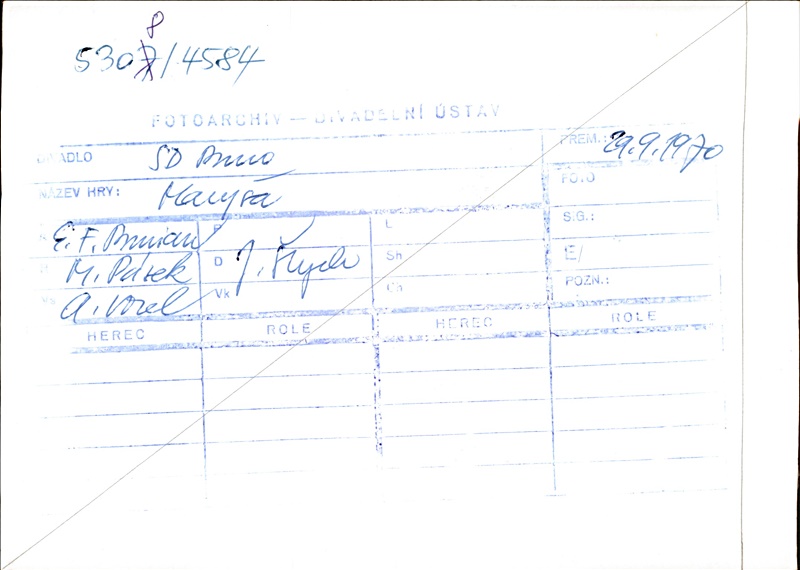 5308/4584
FOTOARCHIV — DIVADELNÍ ÚSTAV
DIVADLO SD Brno PREM.: 29.9.1970
NÁZEV HRY: Maryša FOTO
E. F. Burian L S.G.:
M. Pásek D J. Štych Sh E/
A. Vorel Vk Ch POZN.:
HEREC ROLE HEREC ROLE